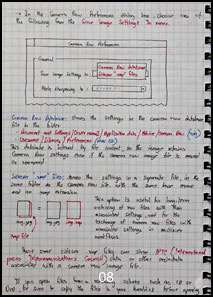 → In the Camera Raw Preferences dialog box, choose one of
the following from the Save Image Settings In menu:
Camera Raw Preferences
General
Save image settings in
Camera Raw database
Sidecar ".xmp" files
Apply sharpening to
Camera Raw database: stores the settings in the Camera Raw database
file in the folder
- Documents and Settings/[user name]/Application Data/Adobe/Camera Raw
- Users/user/Library/Preferences (Mac OS)
This database is indexed by file content so the image retains
Camera Raw settings even if the camera raw image file is moved
or renamed
Sidecar ".xmp" files: stores the settings in a separate file, in the
same folder as the Camera Raw file, with the same base name
and an .xmp extension
This option is useful for long-term
archiving of raw files with their
associated settings and for the
exchange of camera raw files with
associated settings in multiuser
workflows
xmp file
These same sidecar xmp files can store IPTC (International
Press Telecommunications Council) data or other metadata
associated with a camera raw image file.
If you open files from a read-only volume such as CD or
08